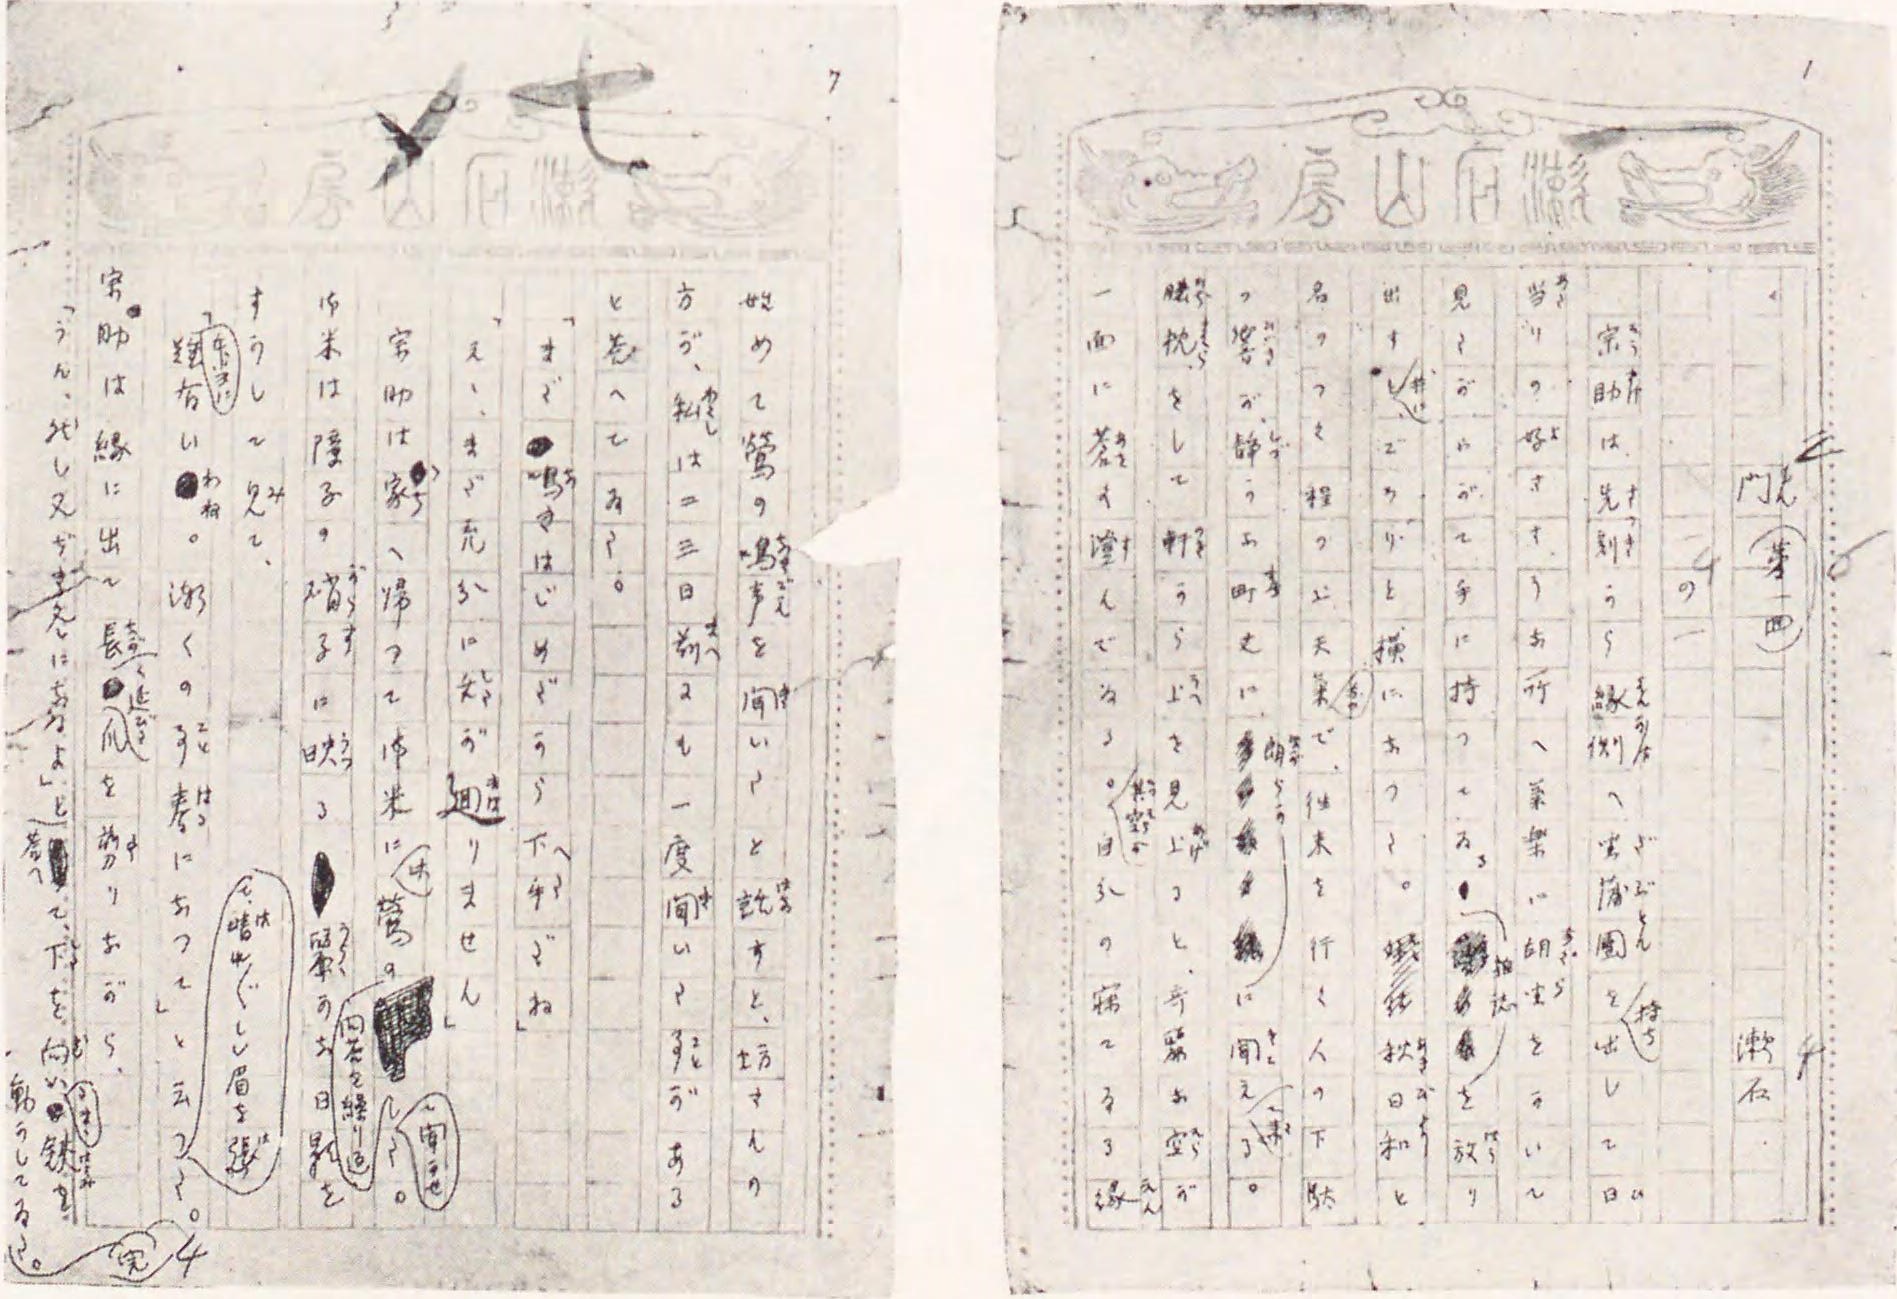 1
漱石山房
門 (第一回) 漱石
一の一
宗助は先刻から縁側へ坐蒲団を持ち出して日
当りの好ささうな所へ気楽に胡坐をかいて
見たがやがて手に持つてゐる雑誌を放り
出すと共にごろりと横になつた。秋日和と
名のつく程の上天気で、往来を行く人の下駄
の響が、静かな町丈に朗らかに聞えて来る。
肱枕をして軒から上を見上ると、奇麗な空が
一面に蒼く澄んでゐる。其空が自分の寐てゐる縁
7
漱石山房
始めて鶯の鳴声を聞いたと話すと、坊さんの
方が、私は二三日前にも一度聞いた事がある
と答へてゐた。
「まだ鳴きはじめだから下手だね」
「えゝ、まだ充分に舌が廻りません」
宗助は家へ帰つて御米に此鶯の問答を繰り返して聞かせた。
御米は障子の硝子に映る麗かな日影を
すかして見て、
「本当に難有いわね。漸くの事春になつて」と云つて、晴れ〴〵しい眉を張つた。
宗助は縁に出て長く延びた爪を剪りながら、
「うん、然し又ぢき冬になるよ」と答へて、下を向いたまゝ鋏を動かしてゐた。
完